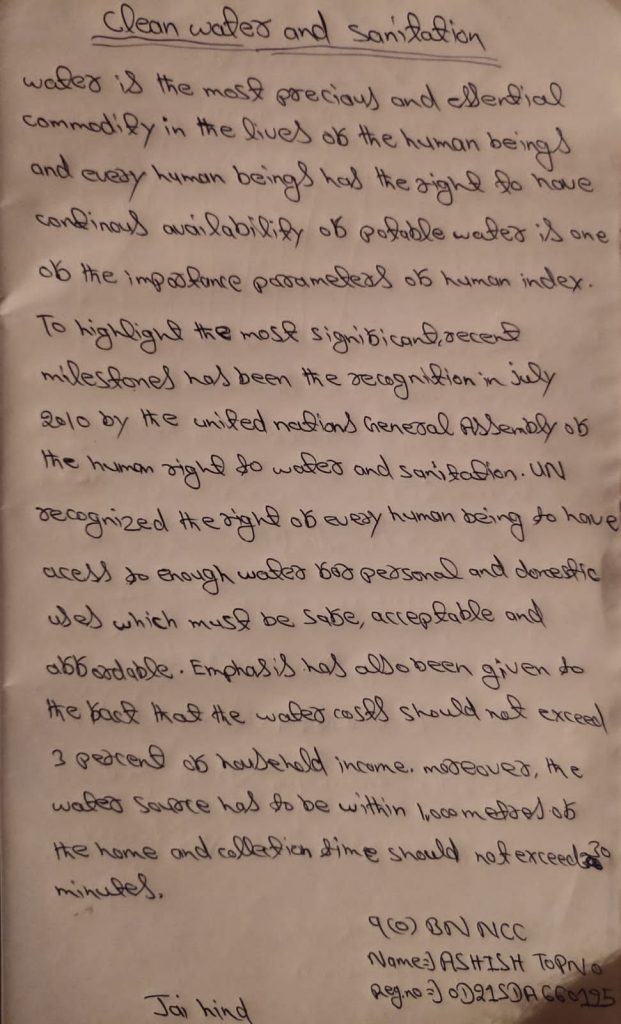 Clean water and sanitation
water is the most precious and essential
commodity in the lives of the human beings
and every human beings has the right to have
continous availability of potable water is one
of the importance parameters of human index.
To highlight the most significant, recent
milestones has been the recognition in july
2010 by the united nations General Assembly of
the human right to water and sanitation. UN
recognized the right of every human being to have
acess to enough water for personal and domestic
uses which must be safe, acceptable and
affordable. Emphasis has also been given to
the fact that the water costs should not exceed
3 percent of household income. moreover, the
water source has to be within 1,000 metres of
the home and collection time should not exceed 30
minutes.
9(O) BN NCC
Name=) ASHISH TOPNO
Reg.no=) OD21SDA660195
Jai hind